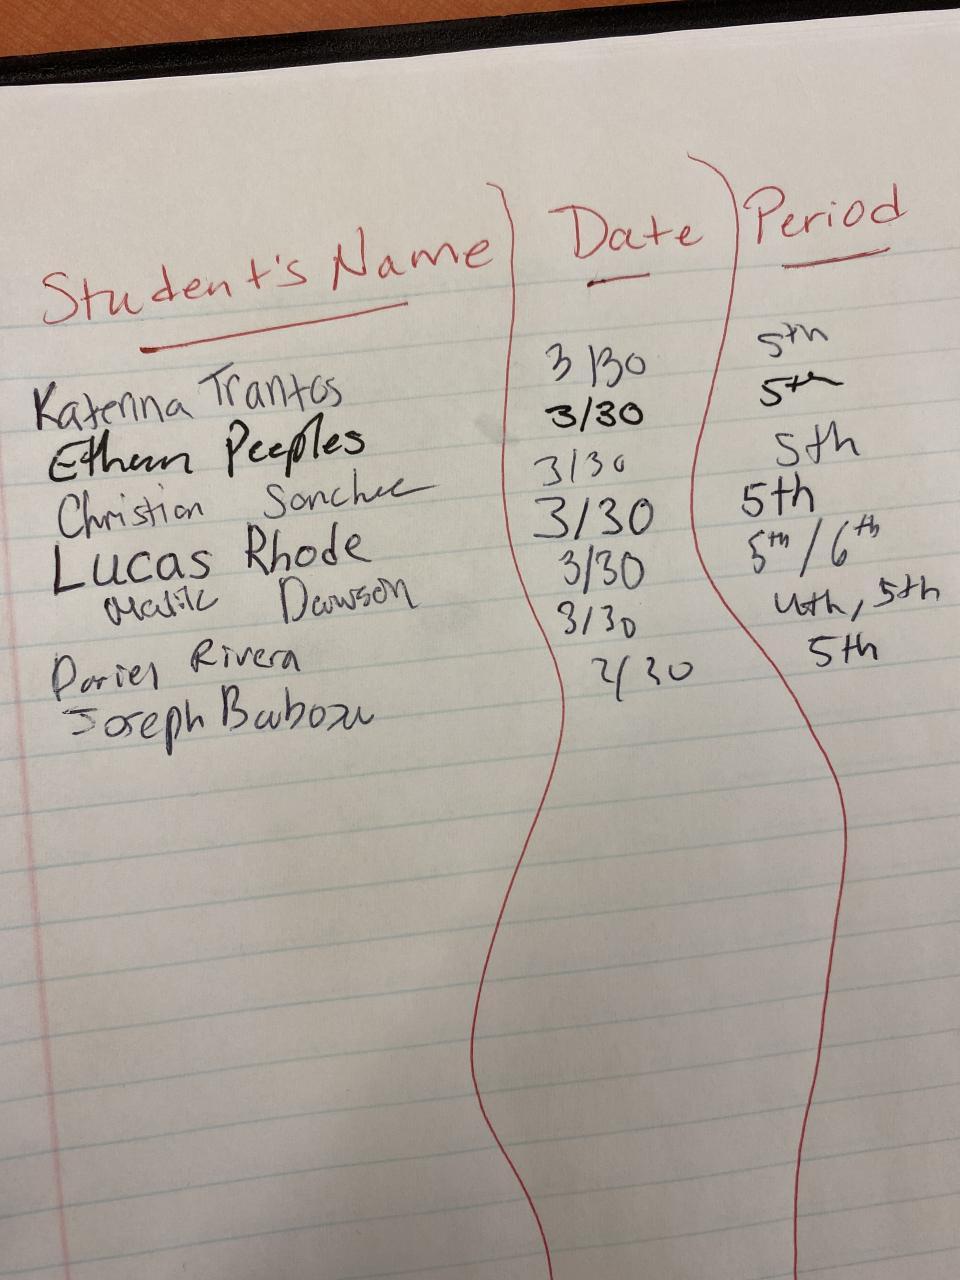 Student's Name Date Period
Katerina Trantos 3/30 5th
Ethan Peeples 3/30 5th
Christian Sanchez 3/30 5th
Lucas Rhode 3/30 5th
Malik Dawson 3/30 5th / 6th
Dariel Rivera 3/30 4th, 5th
Joseph Barboza 3/30 5th